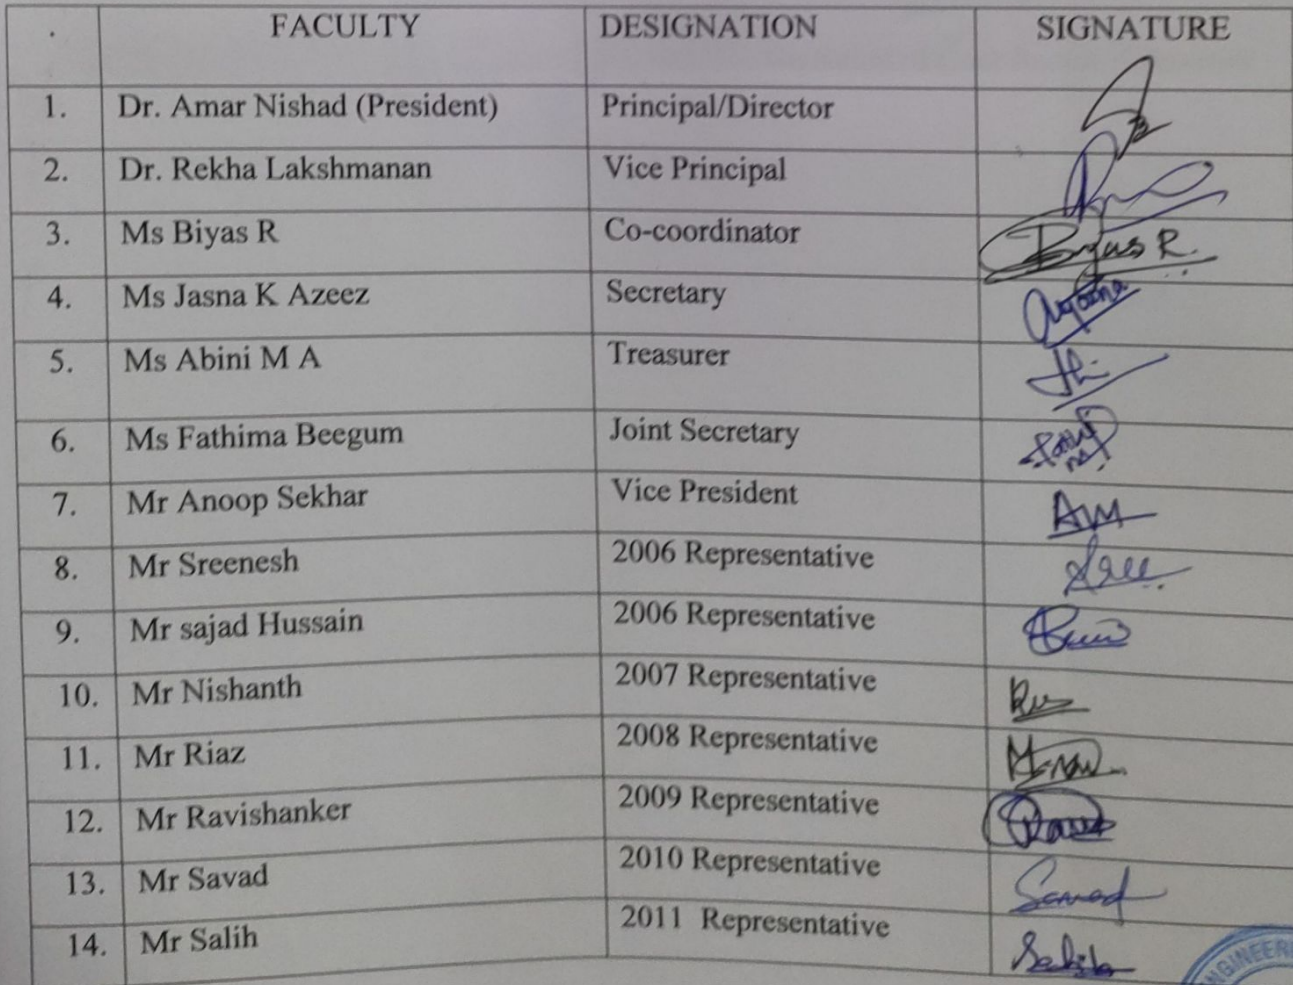 FACULTY DESIGNATION SIGNATURE
1. Dr. Amar Nishad (President) Principal/Director
2. Dr. Rekha Lakshmanan Vice Principal
3. Ms Biyas R Co-coordinator Biyas R.
4. Ms Jasna K Azeez Secretary
5. Ms Abini M A Treasurer
6. Ms Fathima Beegum Joint Secretary
7. Mr Anoop Sekhar Vice President
8. Mr Sreenesh 2006 Representative Sree
9. Mr sajad Hussain 2006 Representative
10. Mr Nishanth 2007 Representative
11. Mr Riaz 2008 Representative
12. Mr Ravishanker 2009 Representative
13. Mr Savad 2010 Representative Savad
14. Mr Salih 2011 Representative Salih